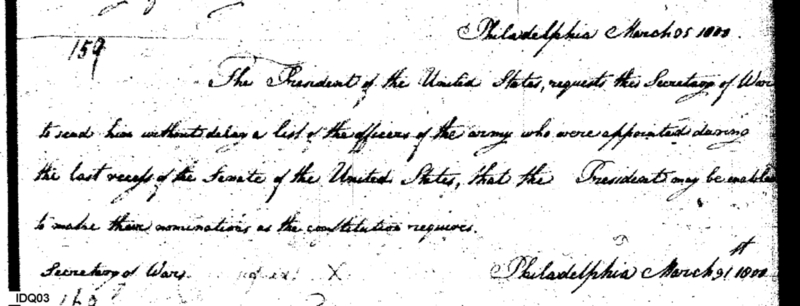 Philadelphia March 25 1800.
159
The President of the United States, requests the Secretary of War
to send him without delay a list of the officers of the army who were appointed during
the last recess of the Senate of the United States, that the President may be enabled
to make their nominations as the constitution requires.
Secretary of War. X Philadelphia March 31st 1800
160
IDQ03